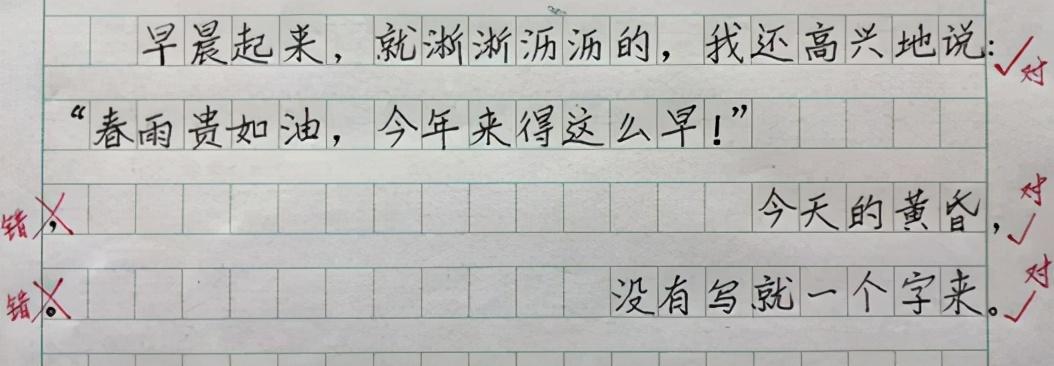 早晨起来，就淅淅沥沥的，我还高兴地说：✓对
“春雨贵如油，今年来得这么早！”
错，今天的黄昏，✓对
错。没有写就一个字来。✓对